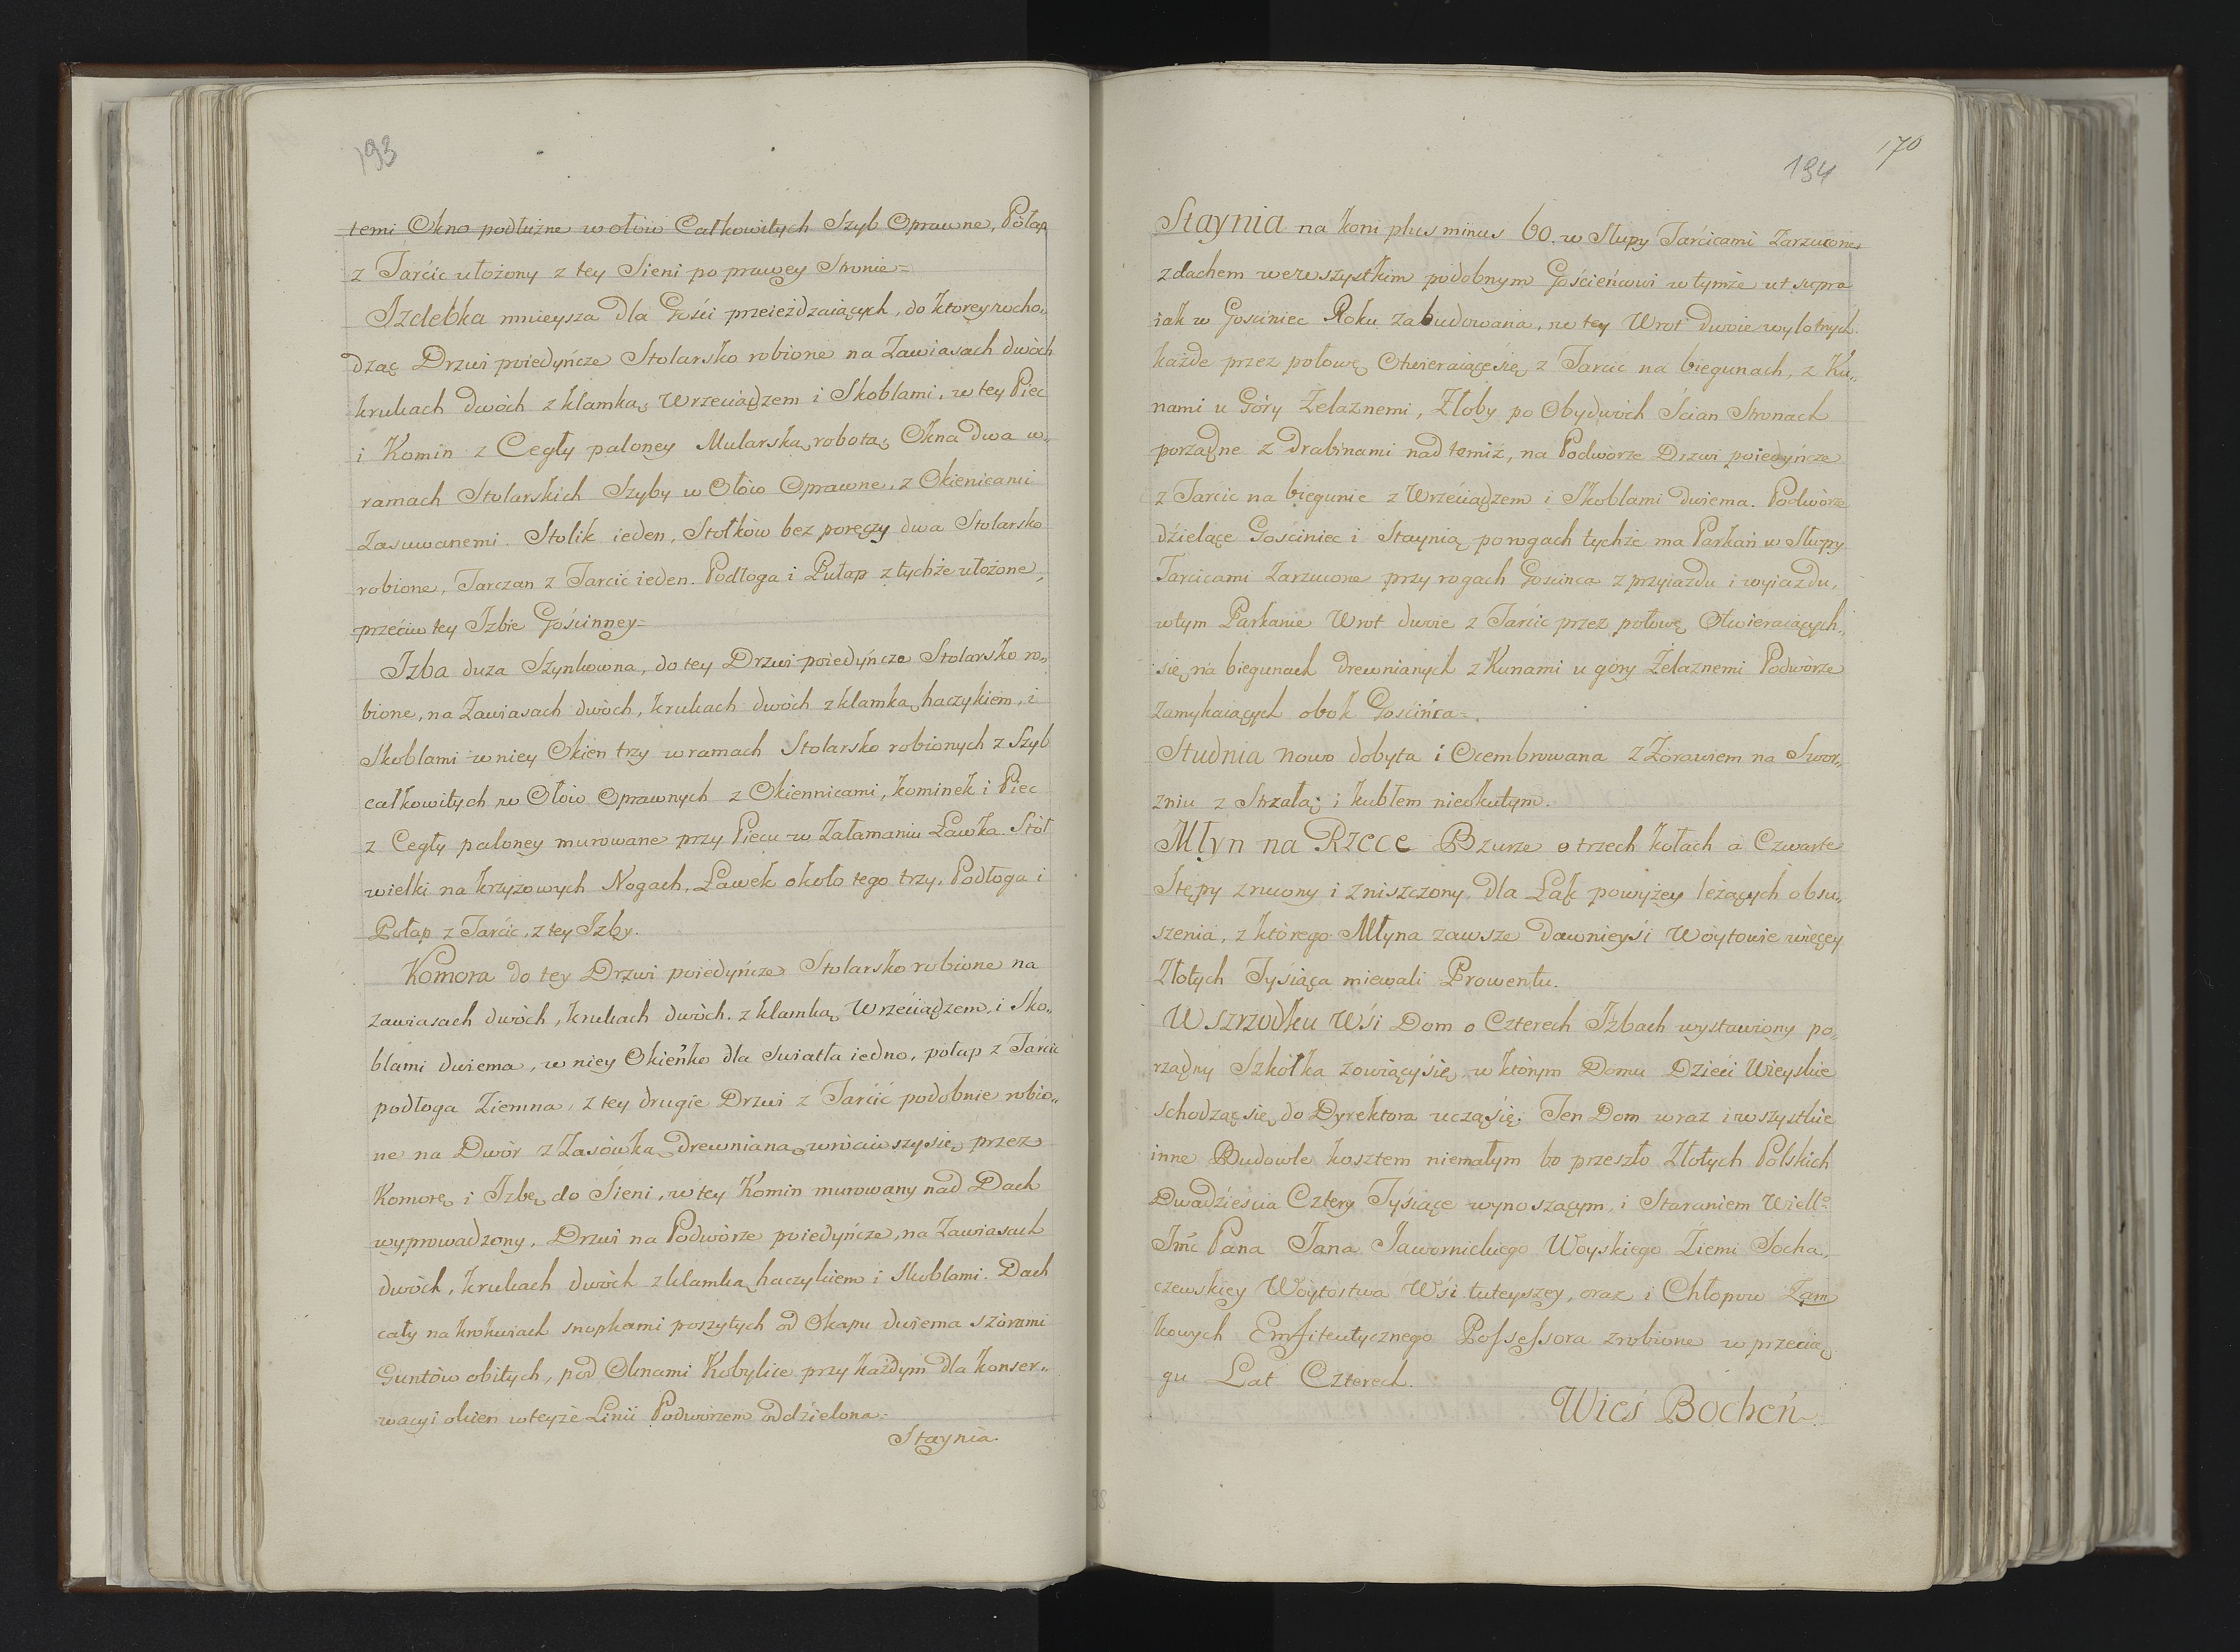 193
temi Okno podłużne w ołów Całkowitych Szyb Oprawne, Połap
z Tarcic ułożony z tey Sieni po prawey Stronie=
Izdebka mnieysza dla Gości przeieżdzaiących, do którey wcho„
dząc Drzwi poiedyńcze Stolarsko robione na Zawiasach dwóch
krukach dwóch z klamką, Wrzeciądzem i Skoblami, w tey Piec
i Komin z Cegły paloney Mularską robotą, Okna dwa w„
ramach Stolarskich Szyby w Ołów Oprawne, z Okienicami
Zasuwanemi. Stolik ieden, Stołków bez poręczy dwa Stolarsko
robione, Tarczan z Tarcic ieden. Podłoga i Pułap z tychże ułożone,
przeciw tey Izbie Gościnney=
Izba duża Szynkowna, do tey Drzwi poiedyńcze Stolarsko ro„
bione, na Zawiasach dwóch, krukach dwóch z klamką, haczykiem, i
Skoblami w niey Okien trzy w ramach Stolarsko robionych z Szyb
całkowitych w Ołów Oprawnych z Okiennicami, kominek i Piec
z Cegły paloney murowane przy Piecu w Załamaniu Ławka Stół
wielki na krzyżowych Nogach, Ławek około tego trzy, Podłoga i
Pułap z Tarcic, z tey Izby.
Komora do tey Drzwi poiedyńcze Stolarsko robione na
zawiasach dwóch, krukach dwóch, z klamką, Wrzeciądzem, i Sko„
blami dwiema, w niey Okieńko dla Swiatła iedno, połap z Tarcic
podłoga Ziemna, z tey drugie Drzwi z Tarcic podobnie robio„
ne na Dwór z Zasówką drewnianą, wróciwszy się przez
Komorę i Izbę do Sieni, w tey Komin murowany nad Dach
wyprowadzony, Drzwi na Podworze poiedyńcze, na Zawiasach
dwóch, krukach dwóch z klamką haczykiem i Skoblami. Dach
cały na krokwiach snopkami poszytych od Okapu dwiema szórami
Guntów obitych, pod Oknami Kobylice przy każdym dla konser„
wacyi okien w teyże Linii Podwórzem oddzielona=
Staynia.
170
194
Staynia na koni plus minus 60. w Słupy Tarcicami Zarzucone
z dachem we wszystkim podobnym Gościeńcowi w tymże ut supra
iak w Gosciniec Roku zabudowana, w tey Wrot dwoie wylotnych
każde przez połowę Otwieraiące się z Tarcic na biegunach, z Ku„
nami u Góry Żelaznemi, Żłoby po Obydwóch Ścian Stronach
porządne z drabinami nad temiż, na Podworze Drzwi poiedyńcze
z Tarcic na biegunie z Wrzeciądzem i Skoblami dwiema. Podwórze
dźielące Gościniec i Staynią po rogach tychże ma Parkan w Słupy
Tarcicami Zarzucone przy rogach Gościnca z przyiazdu i wyiazdu,
w tym Parkanie Wrot dwoie z Tarcic przez połowę Otwieraiących„
się na biegunach drewnianych z Kunami u góry Żelaznemi Podwórze
Zamykaiących obok Gościńca=.
Studnia nowo dobyta i Ocembrowana z Żorawiem na Swor„
zniu z Strzałą; i kubłem nieokutym.
Młyn na Rzece Bzurze o trzech kołach à Czwarte
Stępy zrucony i zniszczony dla Łąk powyżey leżących obsu„
szenia, z którego Młyna zawsze dawnieysi Woytowie więcey
Złotych Tysiąca miewali Prowentu.
W szrzodku Wśi Dom o Czterech Izbach wystawiony po„
rządny Szkółka zowiący się w którym Domu Dzieci Wieyskie
schodzą się do Dyrektora uczą się. Ten Dom wraz i wszystkie
inne Budowle kosztem niemałym bo przeszło Złotych Polskich
Dwadzieścia Cztery Tyśiące wynoszącym, i Staraniem Wiell°
Jmć Pana Jana Jawornickiego Woyskiego Ziemi Socha„
czewskiey Woytostwa Wśi tuteyszey, oraz i Chłopow Zam
kowych Emfiteutycznego Possessora zrobione w przecią„
gu Lat Czterech.
Wieś Bocheń